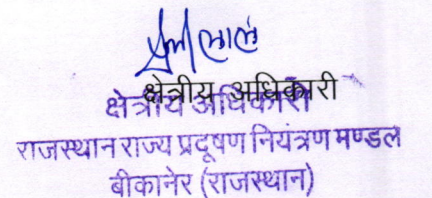 लाल
क्षेत्रीय अधिकारी
क्षेत्रीय अधिकारी
राजस्थान राज्य प्रदूषण नियंत्रण मण्डल
बीकानेर (राजस्थान)